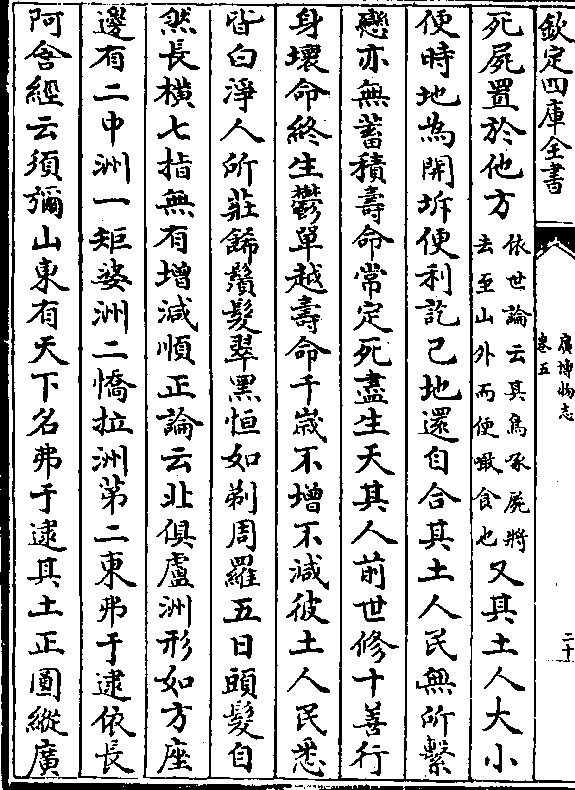 欽定四庫全書
廣博物志
卷五
二十
死屍置於他方依世論云其鳥啄屍將去至山外而便噉食也又其土人大小
便時地為開坼便利訖已地還自合其土人民無所繫
戀亦無蓄積壽命常定死盡生天其人前世修十善行
身壞命終生鬱單越壽命千歲不增不減彼土人民悉
皆白淨人所莊飾鬚髮翠黑恒如剃周羅五日頭髮自
然長橫七指無有增減順正論云北俱盧洲形如方座
邊有二中洲一矩婆洲二憍拉洲第二東弗于逮依長
阿含經云須彌山東有天下名弗于逮其土正圓縱廣